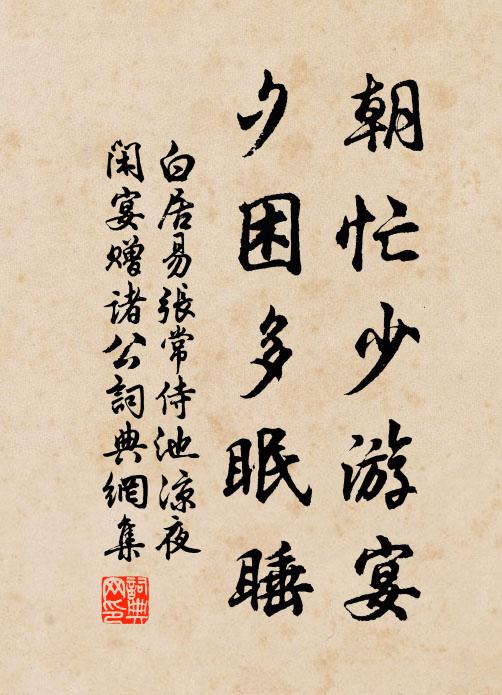 朝忙少游宴
夕困多眠睡
白居易張常侍池涼夜
閑宴贈諸公詞典網集
詞典
网印